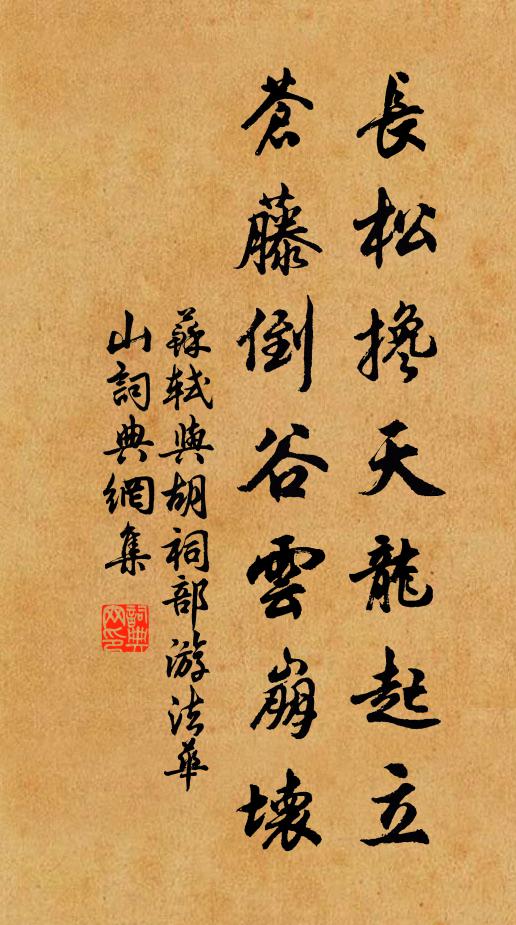 長松攙天龍起立
蒼藤倒谷雲崩壞
蘇軾與胡祠部游法華
山詞典網集
詞典
網印